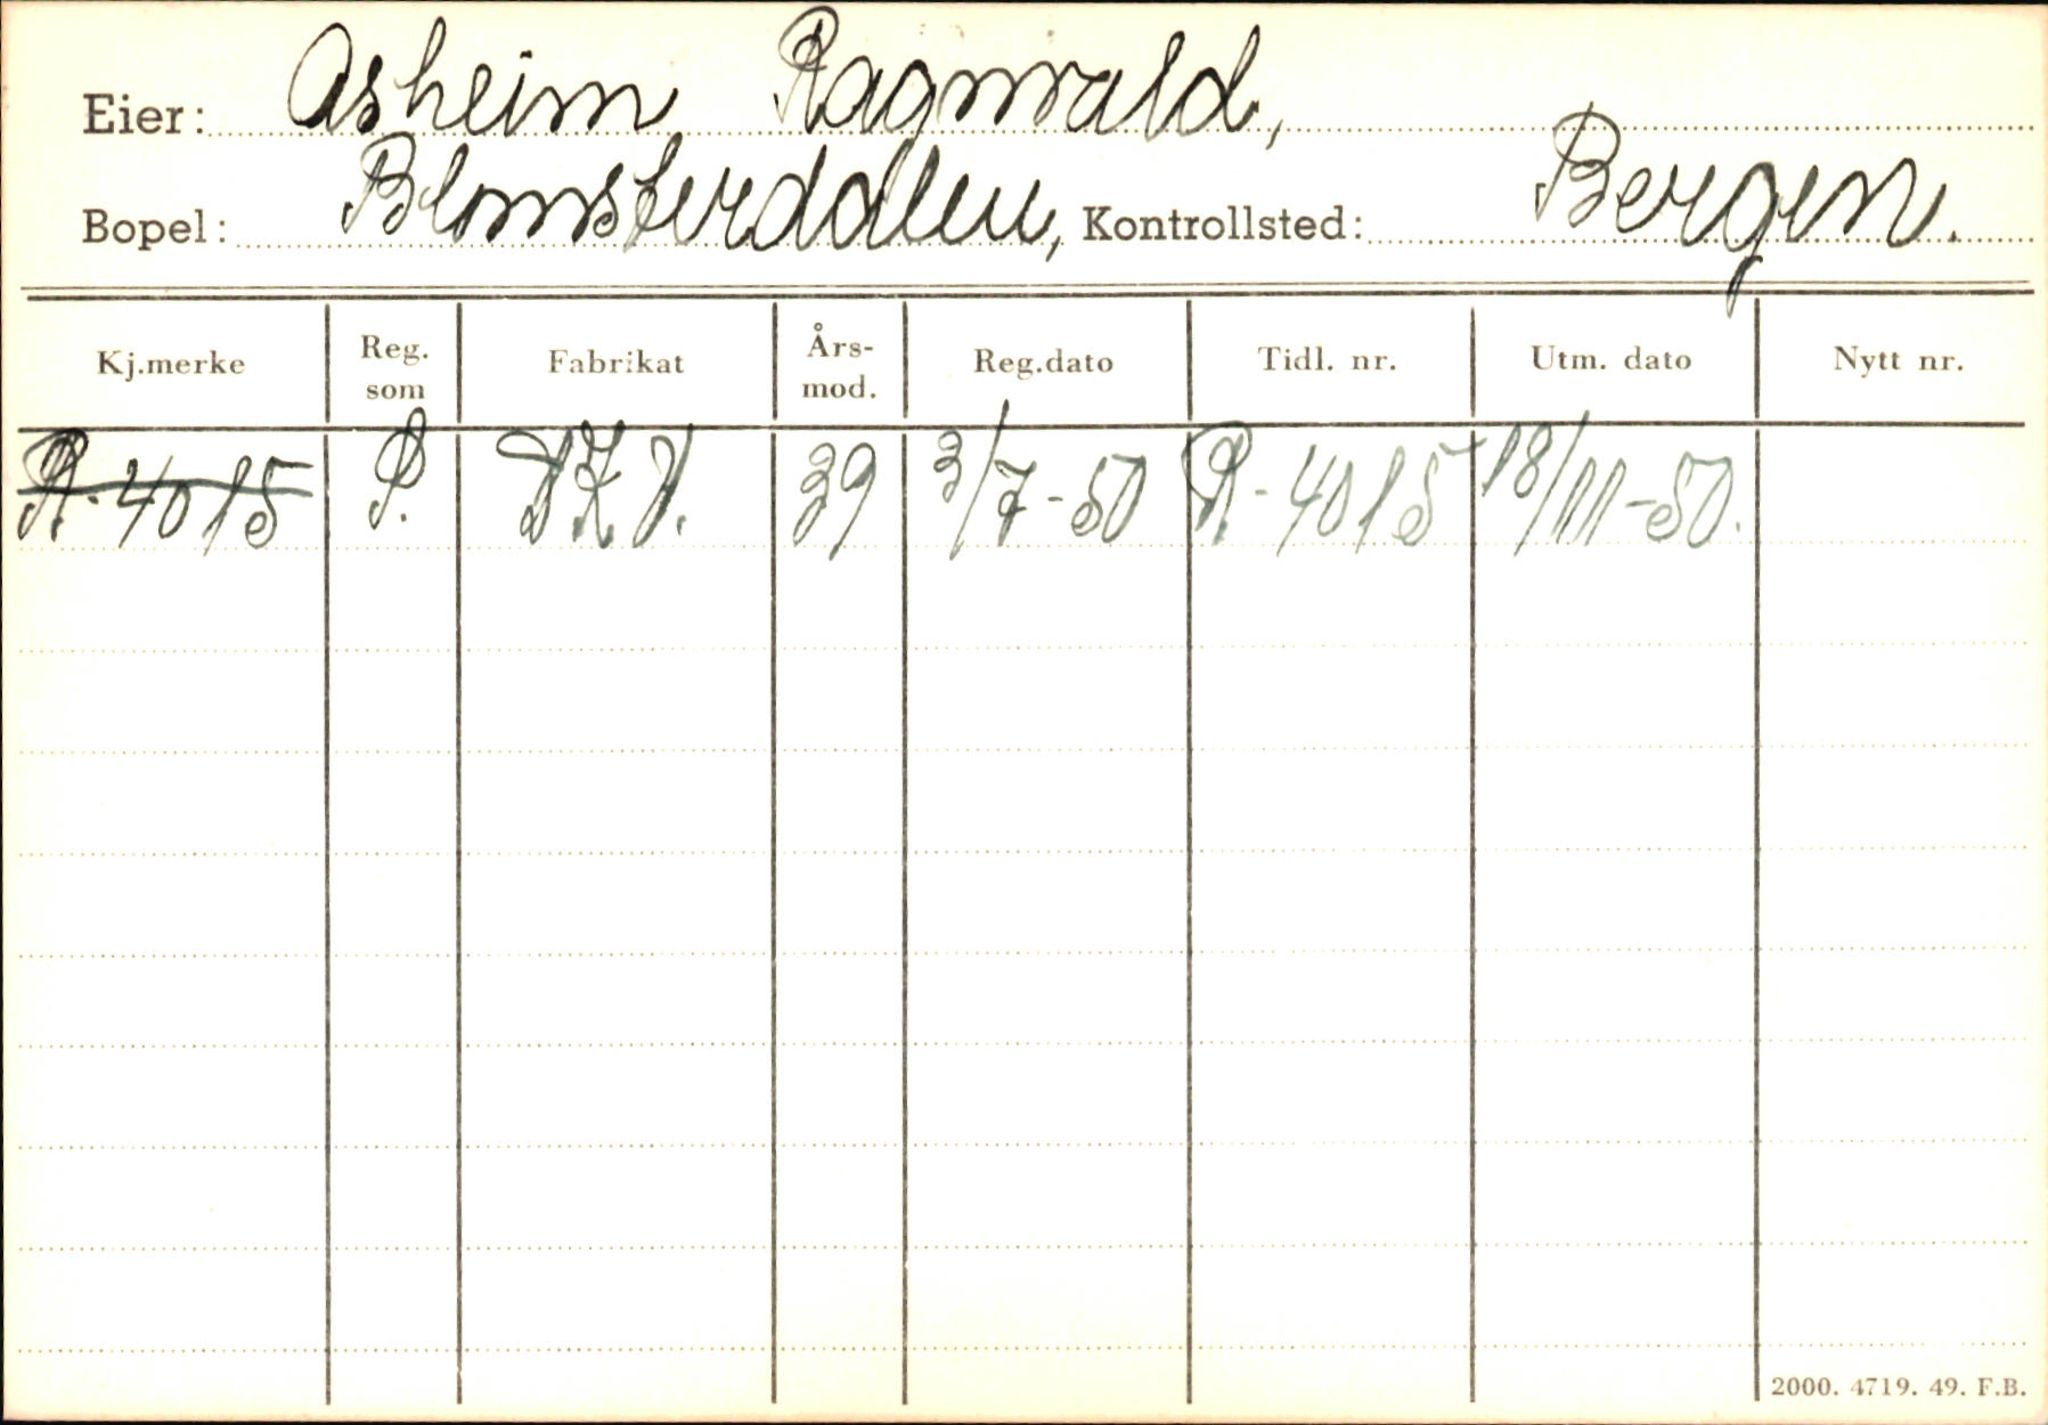 Eier: Asheim Ragnvald,
Bopel: Blomsterdalen, Kontrollsted: Bergen.
Kj.merke Reg. som Fabrikat Års- mod. Reg.dato Tidl. nr. Utm. dato Nytt nr.
R-4015 P. DKV. 39 3/7-50 R-4015 18/11-50.
2000. 4719. 49. F.B.